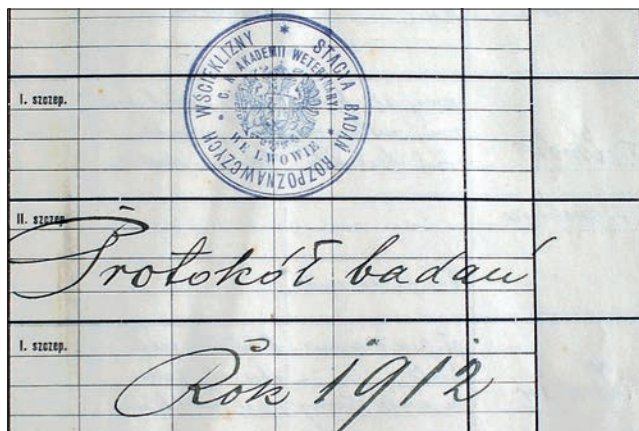 STACJA BADAŃ ROZPOZNAWCZYCH WŚCIEKLIZNY *
* C. K. AKADEMII WETERYNARYI *
WE LWOWIE
I. szczep.
II. szczep.
Protokół badań
I. szczep.
Rok 1912